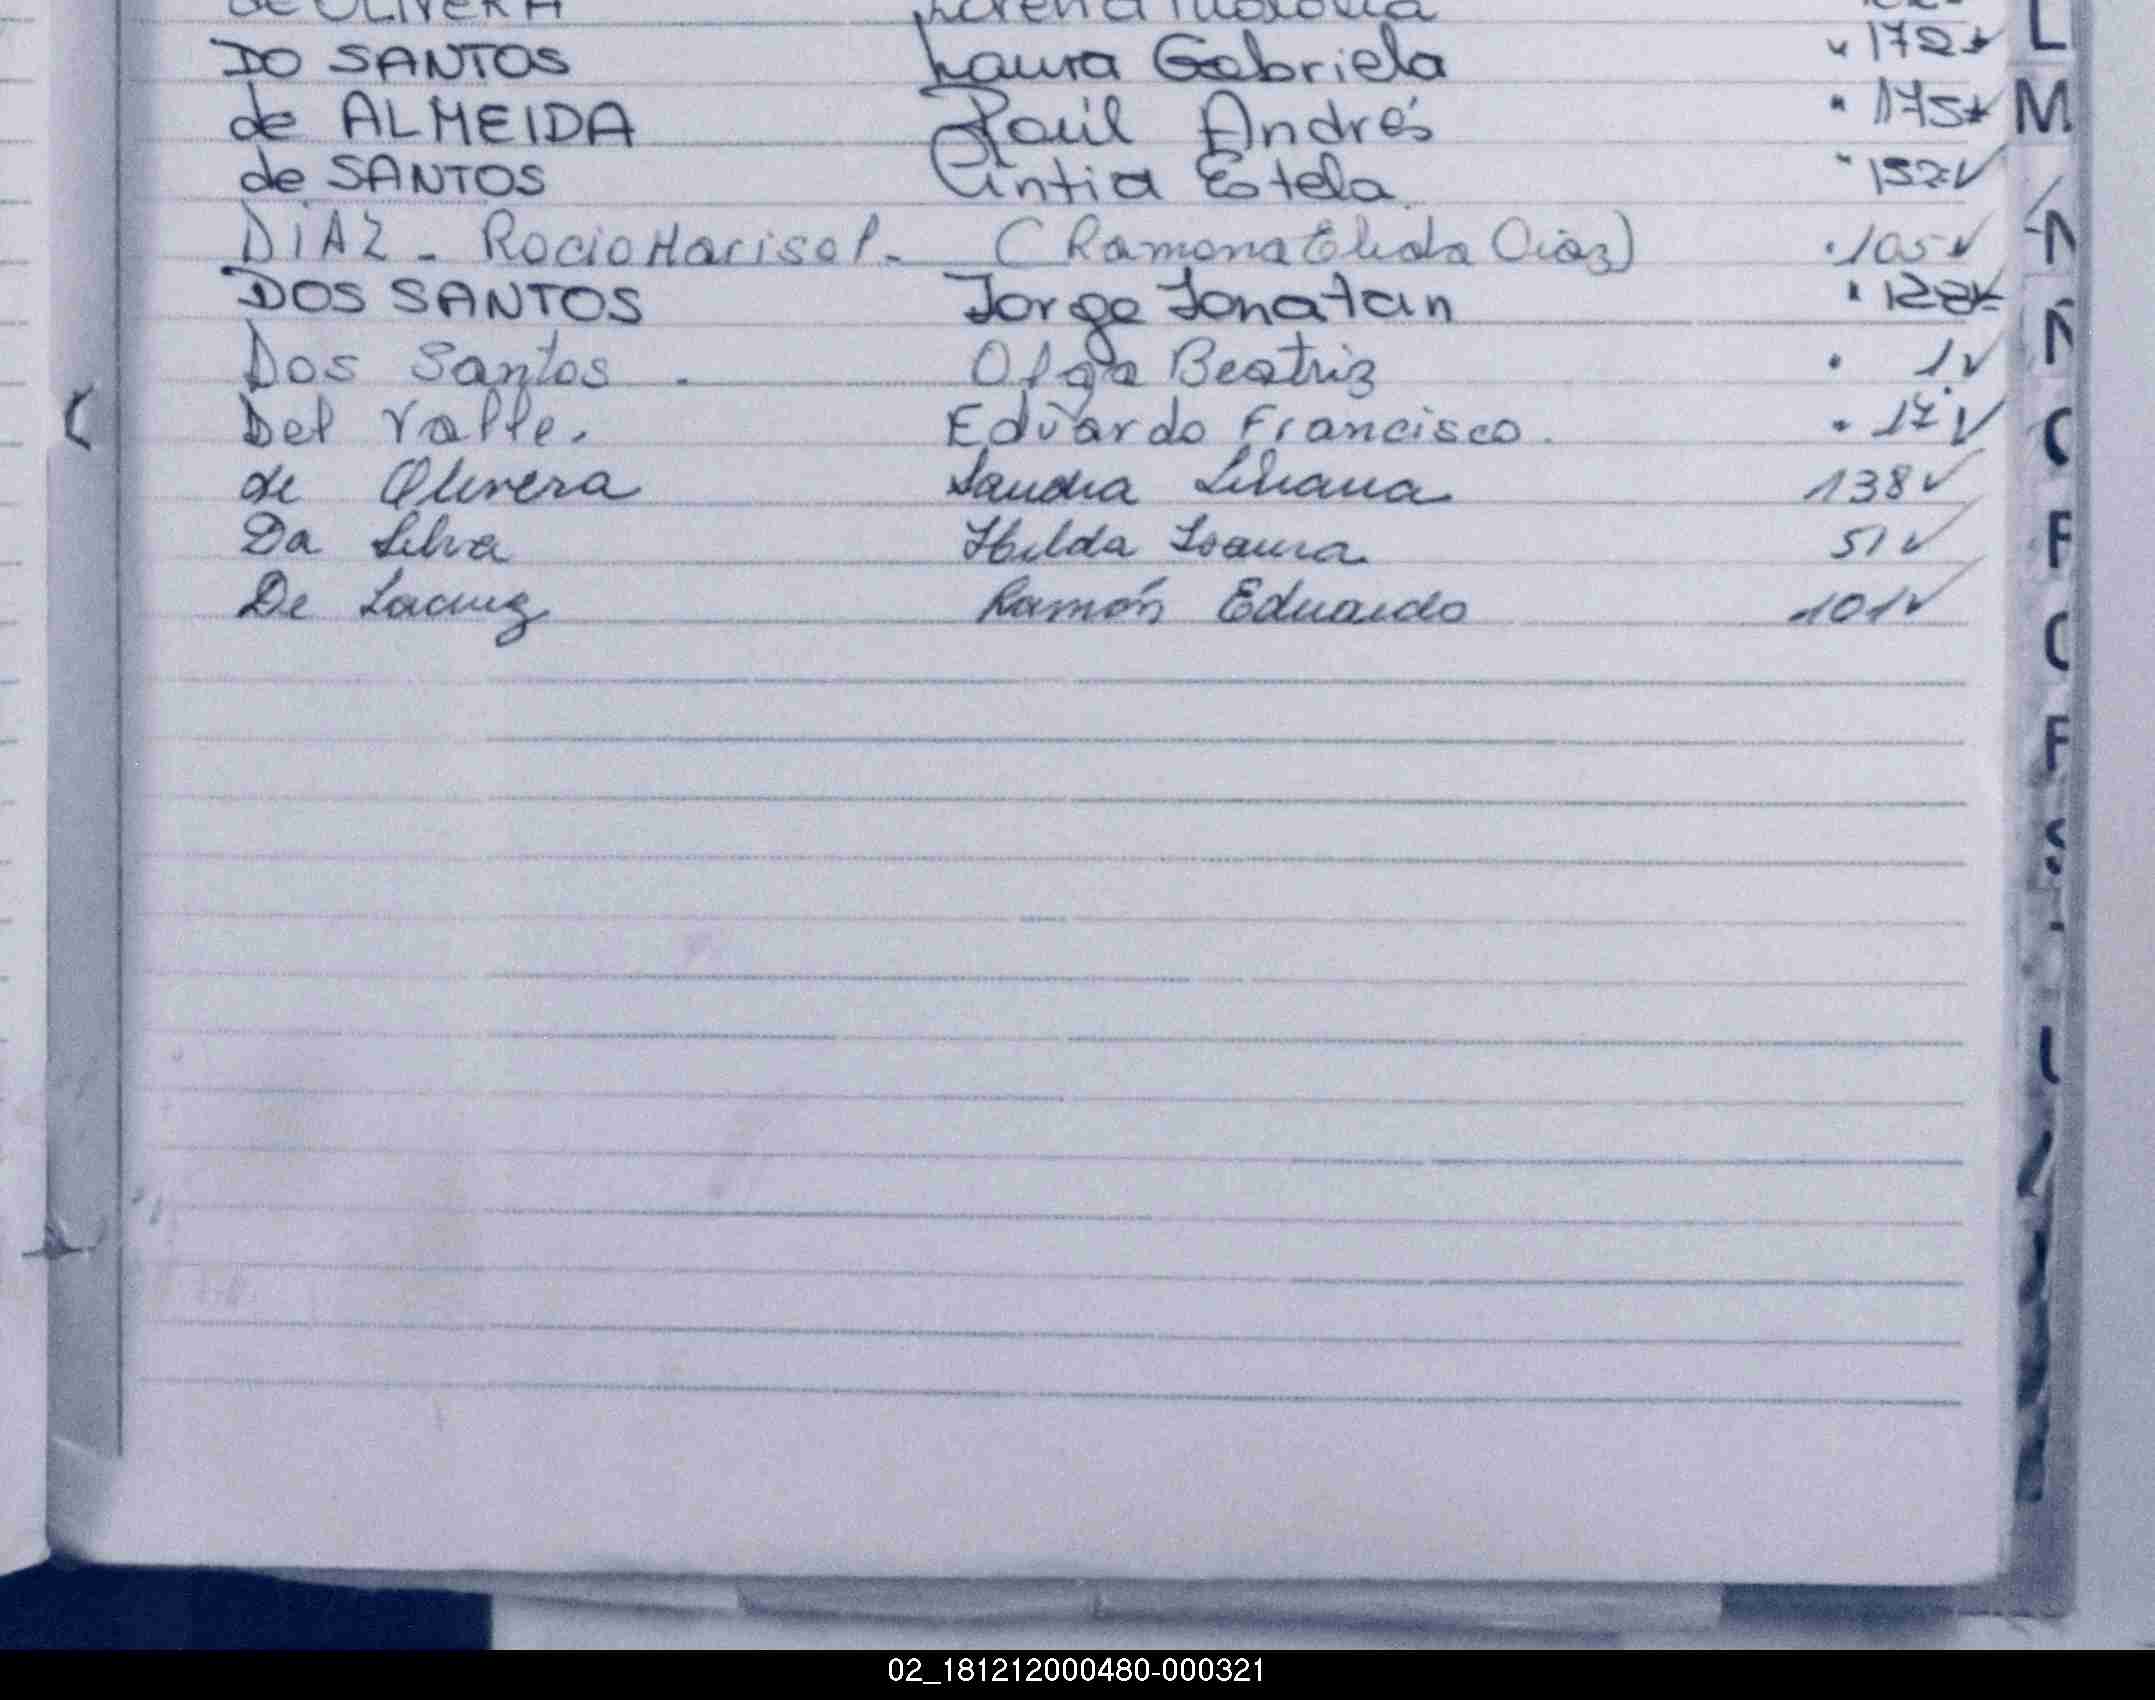 de OLIVERA Lorena
DO SANTOS Laura Gabriela 172 L
de ALMEIDA Raúl Andrés 175 M
de SANTOS Cintia Estela 152
DÍAZ - Rocio Marisol - (Ramona Elida Diaz) 105 N
DOS SANTOS Jorge Jonatan 128
Dos Santos. Olga Beatriz 1 Ñ
Del Valle. Eduardo Francisco. 17
de Olivera Sandra Liliana 138
Da Silva Hilda Isaura 51
De Lacruz Ramón Eduardo 101
02_181212000480-000321